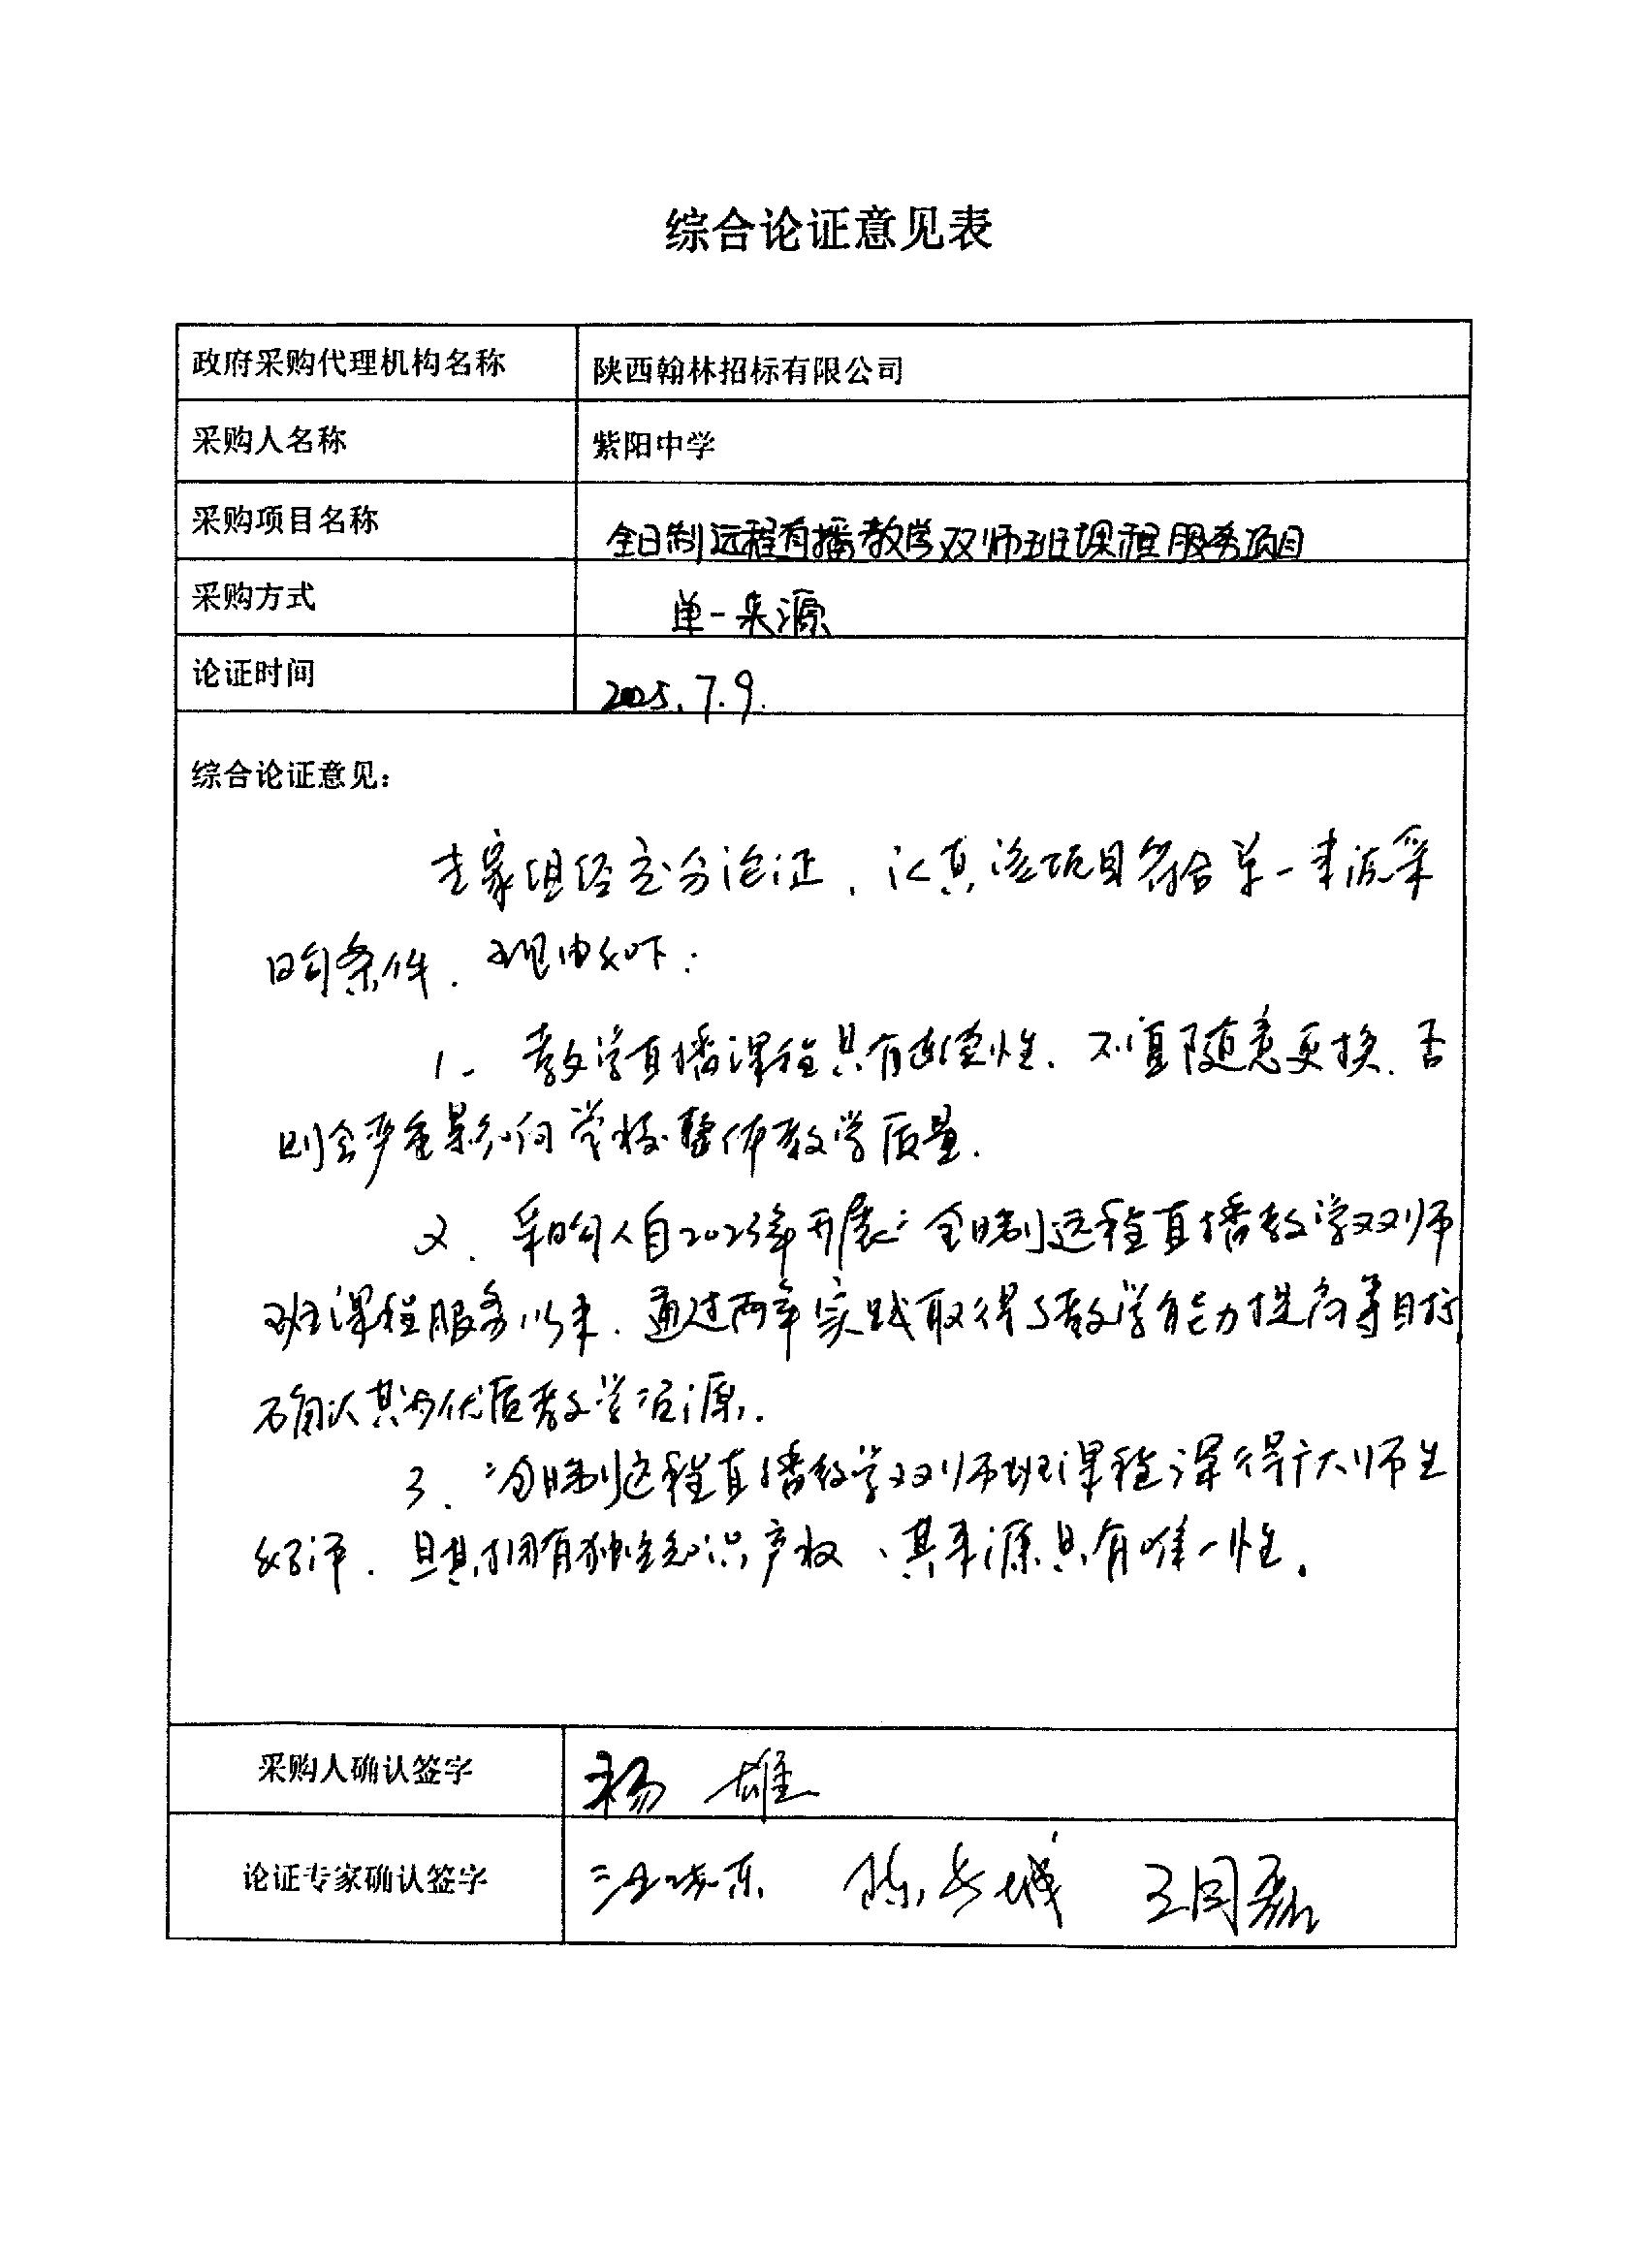 综合论证意见表
政府采购代理机构名称 陕西翰林招标有限公司
采购人名称 紫阳中学
采购项目名称 全日制远程直播教学双师班课程服务项目
采购方式 单一来源
论证时间 2025.7.9.
综合论证意见：
专家组经充分论证，认真该项目符合单一来源采
购条件，理由如下：
1、教学直播课程具有连续性，不宜随意更换，否
则会严重影响学校整体教学质量.
2、采购人自2023年开展“全日制远程直播教学双师
班课程服务以来，通过两年实践取得了教学能力提高等目标
确认其为优质教学资源.
3、“全日制远程直播教学双师班课程深得广大师生
好评，且其拥有独立知识产权、其来源具有唯一性。
采购人确认签字 杨雄
论证专家确认签字 陈长城 王同磊